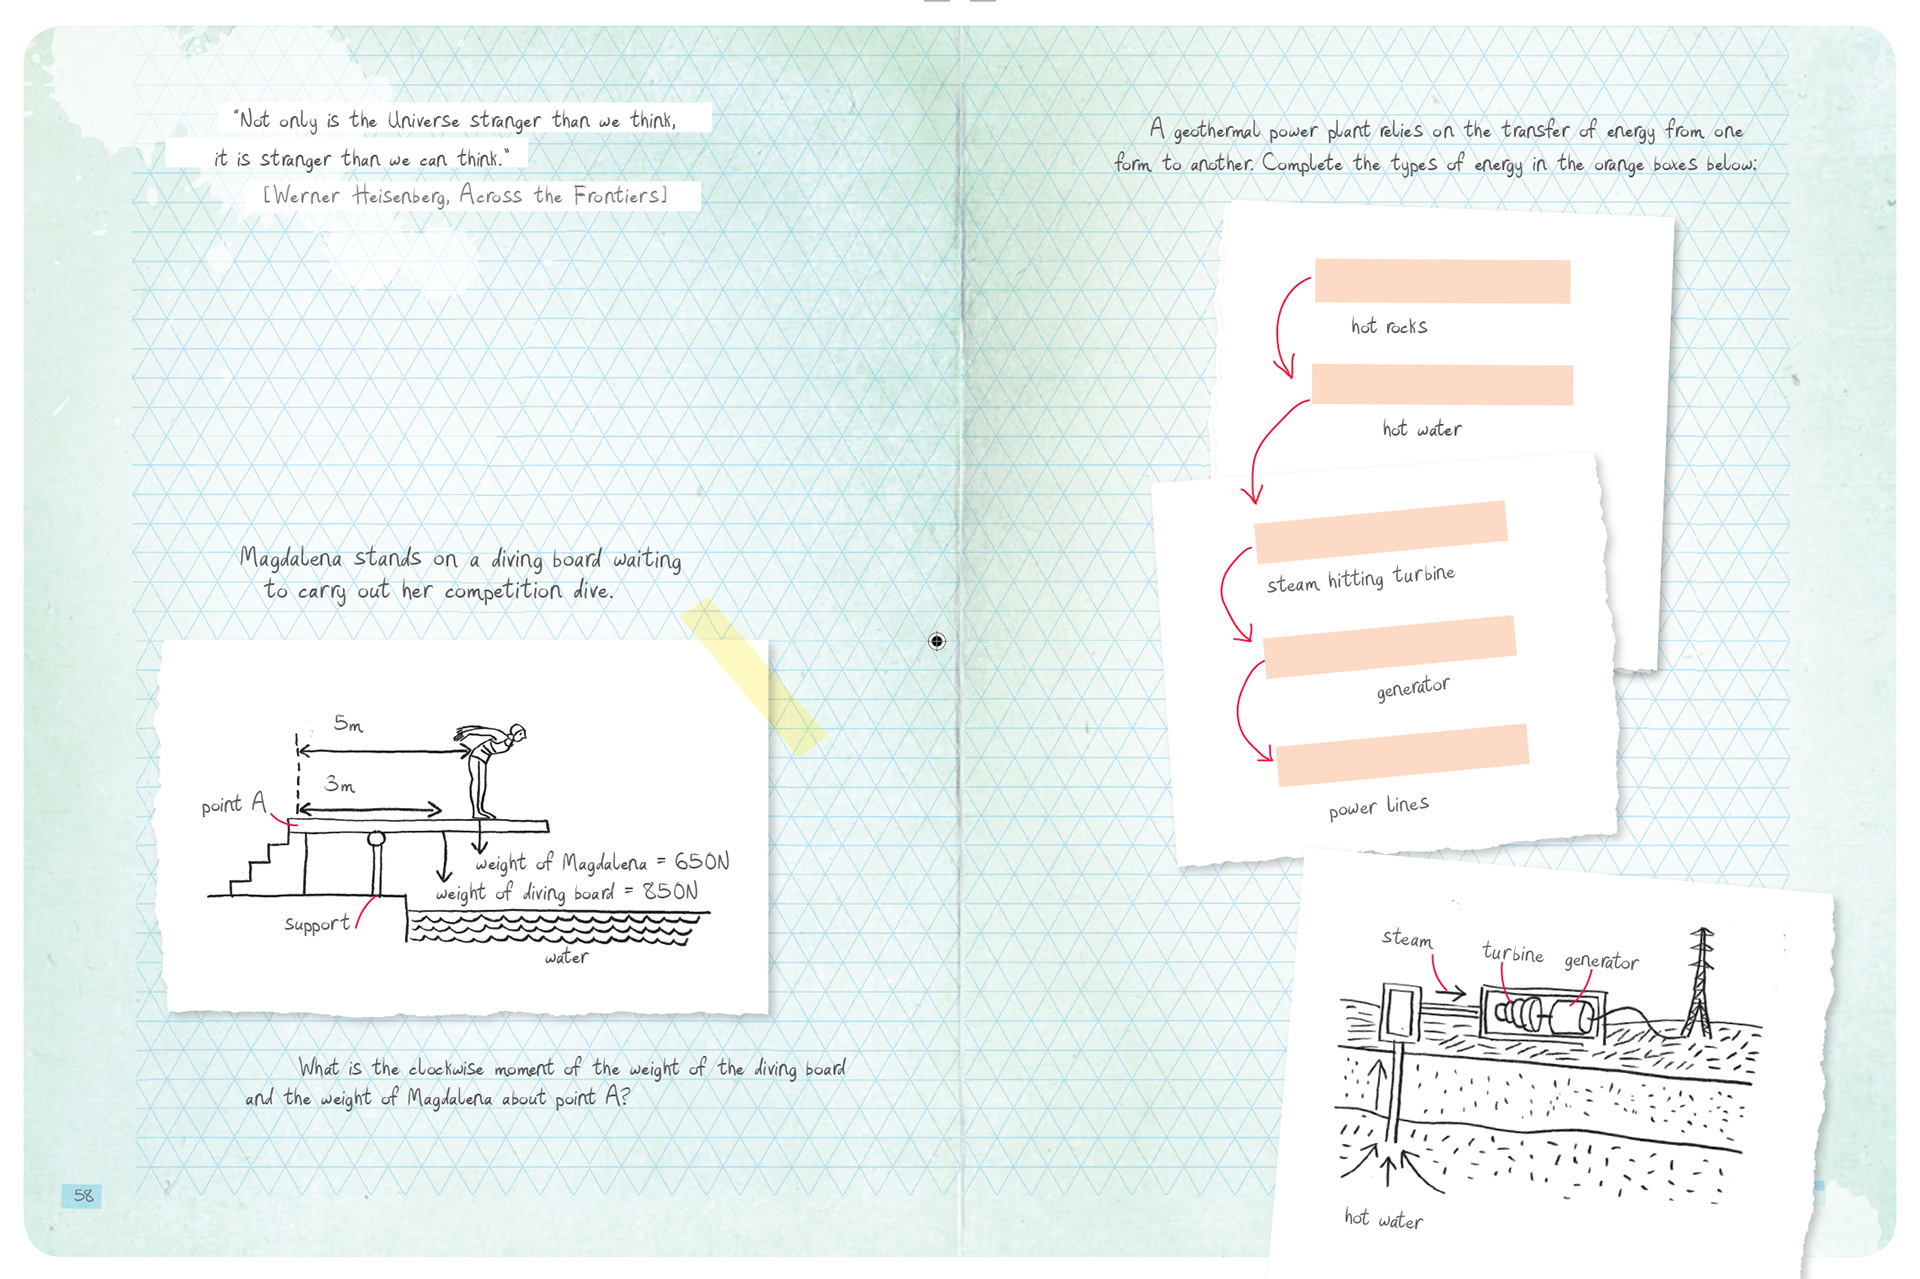 "Not only is the Universe stranger than we think,
it is stranger than we can think."
[Werner Heisenberg, Across the Frontiers]
Magdalena stands on a diving board waiting
to carry out her competition dive.
5m
3m
point A
weight of Magdalena = 650N
weight of diving board = 850N
support
water
What is the clockwise moment of the weight of the diving board
and the weight of Magdalena about point A?
58
A geothermal power plant relies on the transfer of energy from one
form to another. Complete the types of energy in the orange boxes below:
hot rocks
hot water
steam hitting turbine
generator
power lines
steam
turbine
generator
hot water